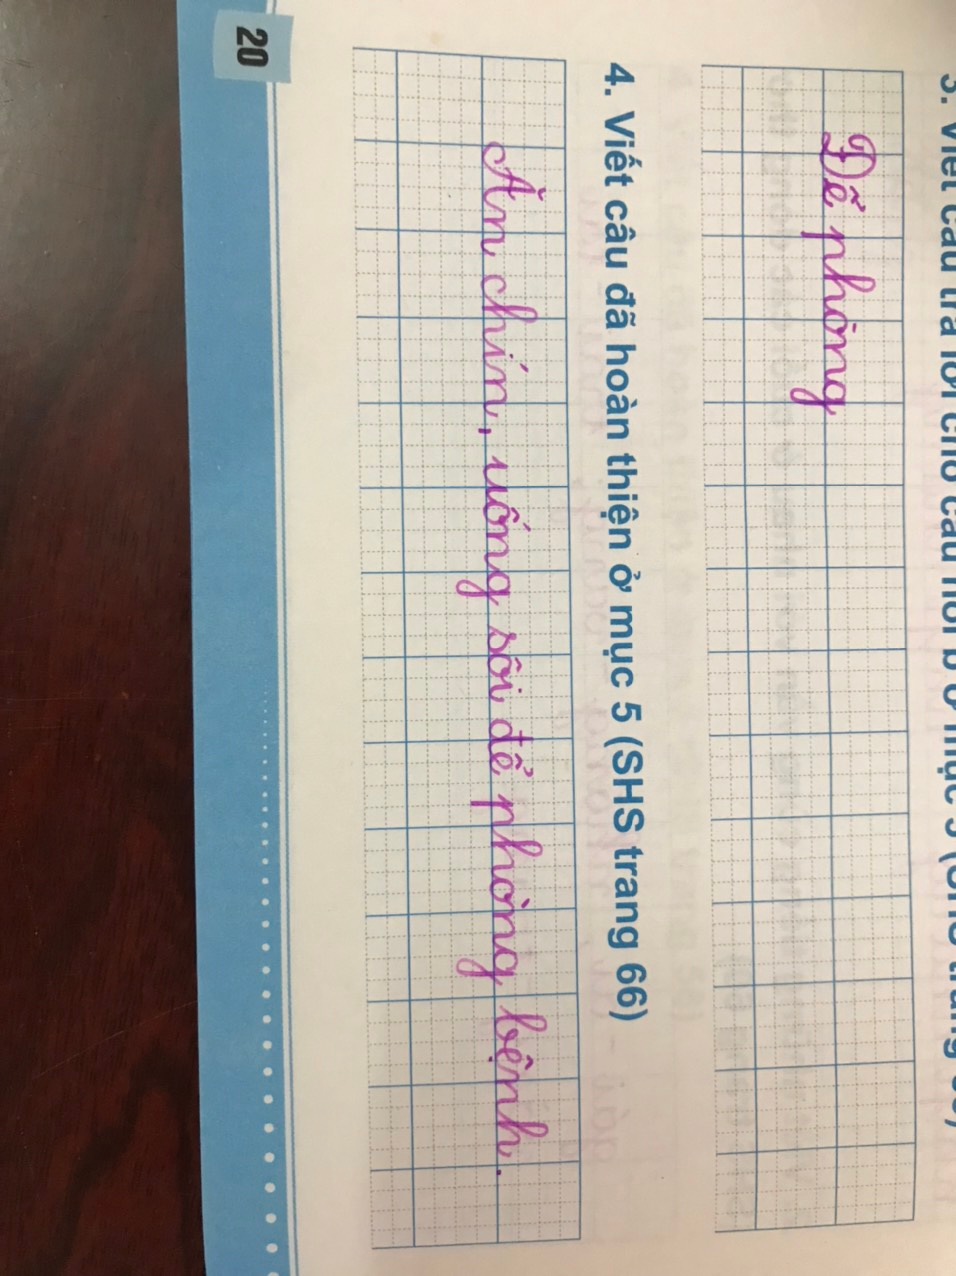 3. Viết câu trả lời cho câu hỏi b ở mục 3 (SHS trang
Để phòng
4. Viết câu đã hoàn thiện ở mục 5 (SHS trang 66)
Ăn chín, uống sôi để phòng bệnh.
20